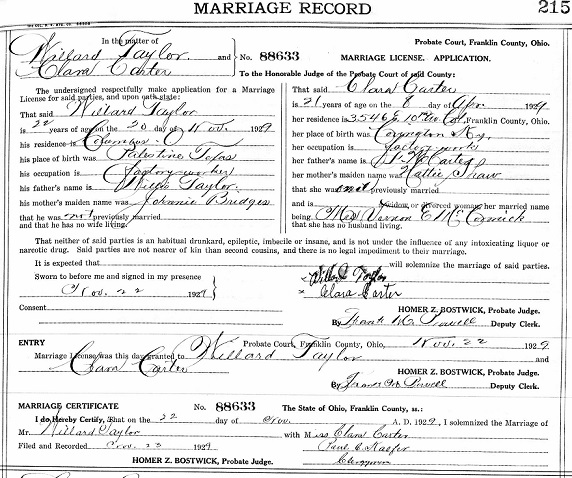 MARRIAGE RECORD 215
In the matter of Probate Court, Franklin County, Ohio.
Willard Taylor and No. 88633 MARRIAGE LICENSE. APPLICATION.
Clara Carter To the Honorable Judge of the Probate Court of said County:
The undersigned respectfully make application for a Marriage
License for said parties, and upon oath state:
That said Willard Taylor
is 22 years of age on the 20 day of Nov. 1929
his residence is Columbus O
his place of birth was Palestine Texas
his occupation is factory worker
his father's name is Willis Taylor
his mother's maiden name was Johnnie Bridges
that he was not previously married
and that he has no wife living.
That said Clara Carter
is 21 years of age on the 8 day of Apr. 1929
her residence is 354 E 10th Ave Col, Franklin County, Ohio.
her place of birth was Covington Ky.
her occupation is factory works
her father's name is Carter
her mother's maiden name was Hattie Shaw
that she was not previously married
and is widow or divorced woman, her married name
being. Mrs Vernon E McCormick
that she has no husband living.
That neither of said parties is an habitual drunkard, epileptic, imbecile or insane, and is not under the influence of any intoxicating liquor or
narcotic drug. Said parties are not nearer of kin than second cousins, and there is no legal impediment to their marriage.
It is expected that will solemnize the marriage of said parties.
Sworn to before me and signed in my presence Willard Taylor
Nov. 22 1929 Clara Carter
Consent HOMER Z. BOSTWICK, Probate Judge.
By Frank M. Powell Deputy Clerk.
ENTRY Probate Court, Franklin County, Ohio, Nov. 22 1929
Marriage License was this day granted to Willard Taylor and
Clara Carter HOMER Z. BOSTWICK, Probate Judge.
By Frank M Powell Deputy Clerk.
MARRIAGE CERTIFICATE No. 88633 The State of Ohio, Franklin County, ss.:
I do Hereby Certify, That on the 22 day of Nov. A. D. 1929, I solemnized the Marriage of
Mr. Willard Taylor with Miss Clara Carter
Filed and Recorded Nov. 23 1929 Paul C. Kaefer
HOMER Z. BOSTWICK, Probate Judge. Clergyman